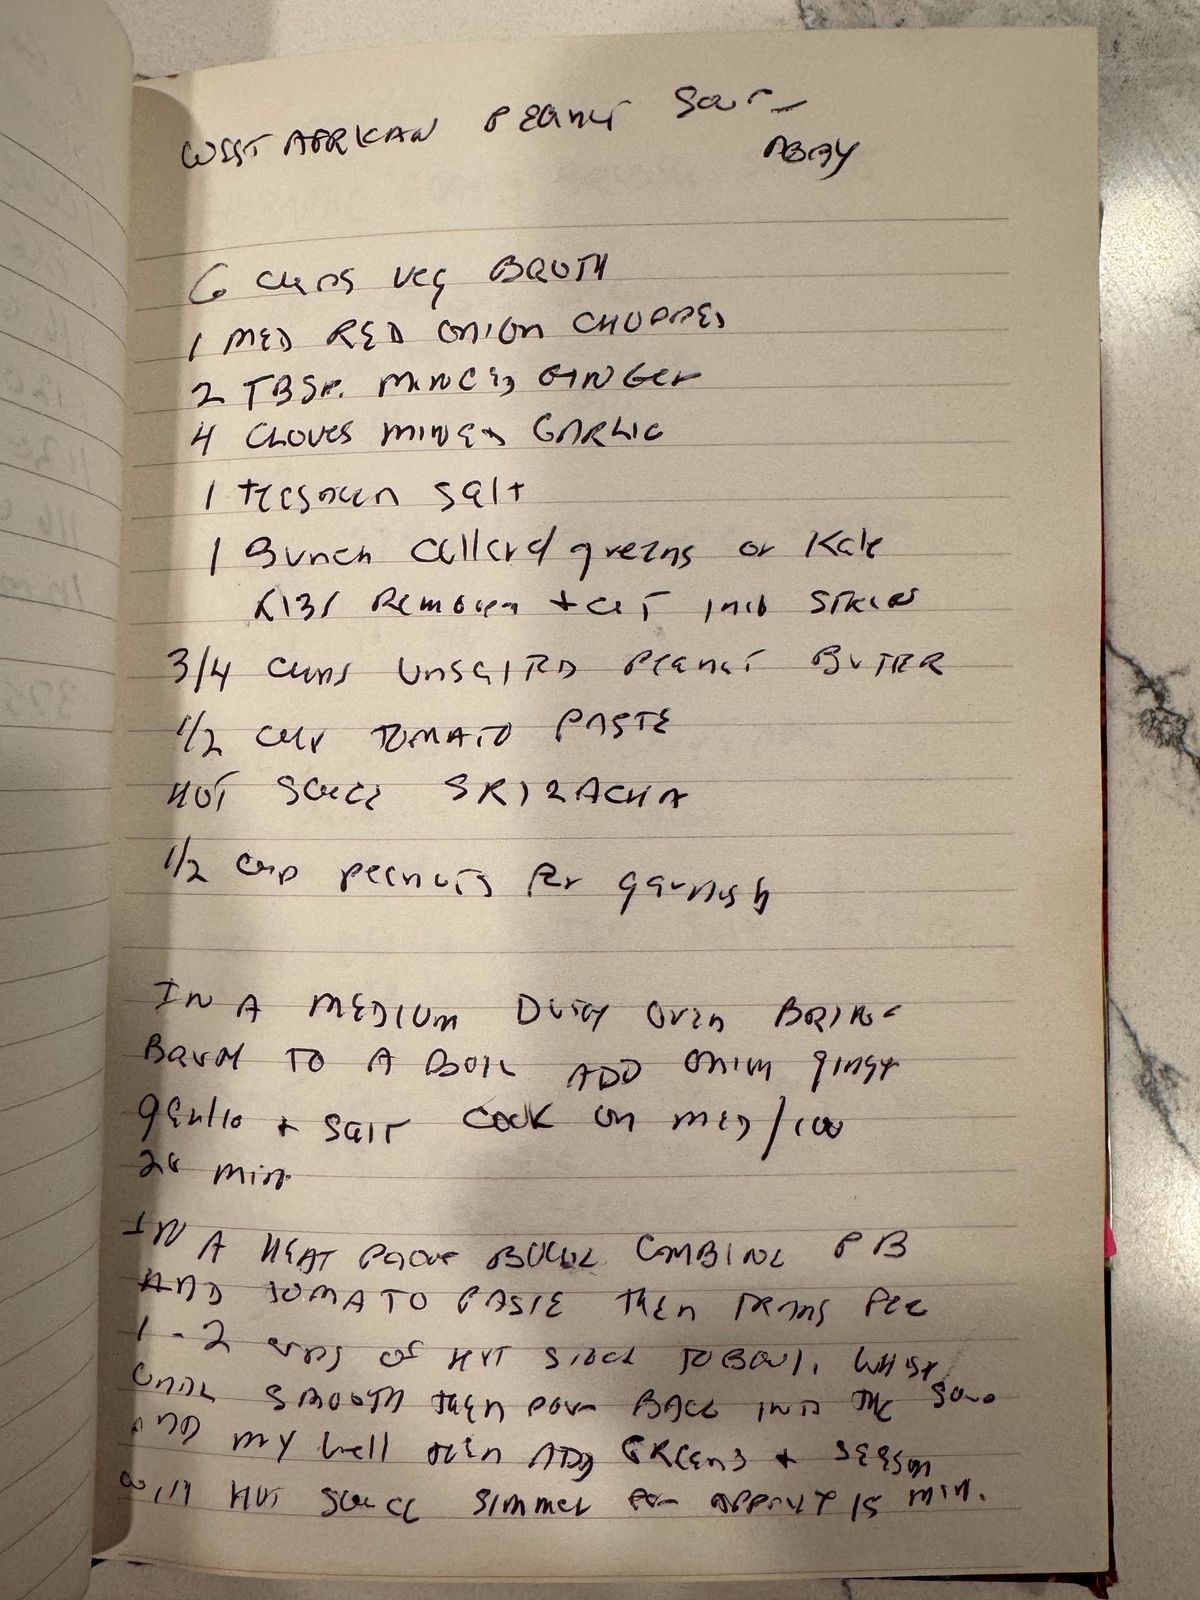 WEST AFRICAN PEANUT SOUP -
ABBY
6 cups veg BROTH
1 MED RED ONION CHOPPED
2 TBSP. MINCED GINGER
4 CLOVES MINCED GARLIC
1 teaspoon salt
1 Bunch collard greens or Kale
RIBS Removed + cut into STRIPS
3/4 cups UNSALTED PEANUT BUTTER
1/2 cup TOMATO PASTE
HOT SAUCE SRIRACHA
1/2 cup peanuts for garnish
IN A MEDIUM DUTCH OVEN BRING
BROTH TO A BOIL ADD ONION ginger
garlic + SALT COOK ON MED/LOW
20 min.
IN A HEAT PROOF BOWL COMBINE PB
AND TOMATO PASTE then TRANSFER
1-2 cups of HOT STOCK TO BOWL. WHISK
UNTIL SMOOTH then pour BACK INTO THE SOUP
AND mix well then ADD GREENS + SEASON
WITH HOT SAUCE SIMMER for APPROX 15 min.